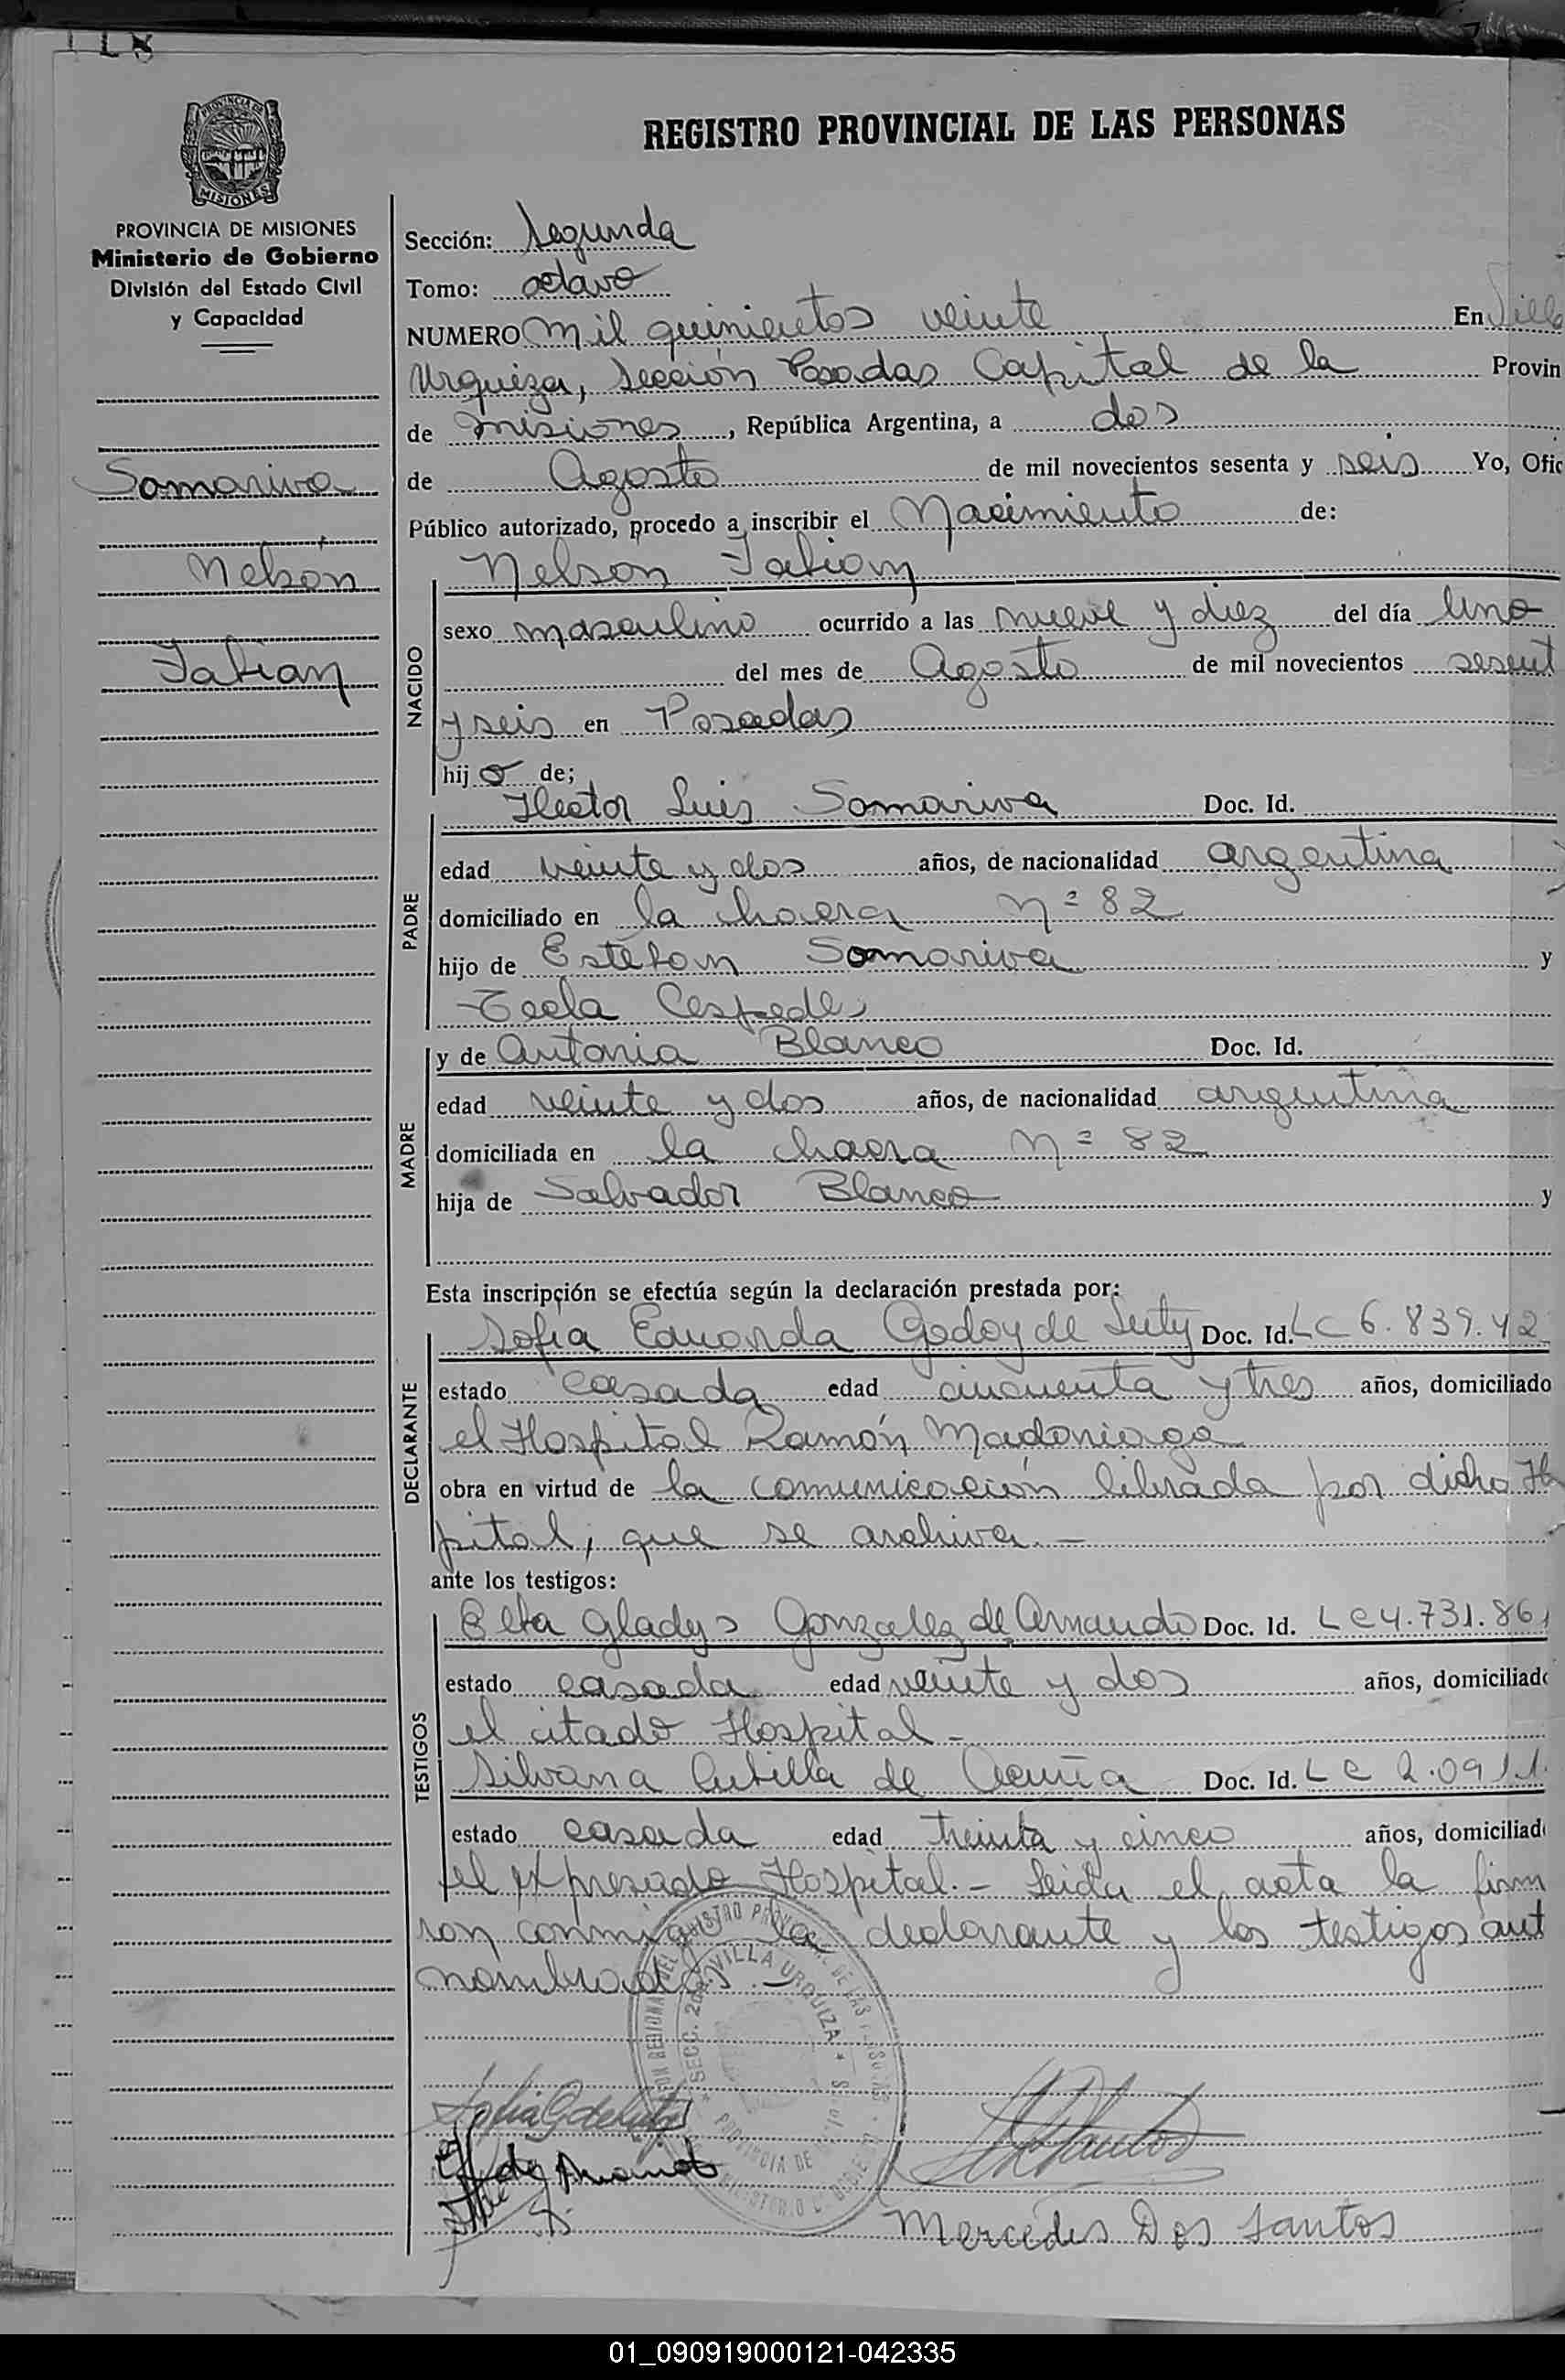 PROVINCIA DE MISIONES
PROVINCIA DE MISIONES
Ministerio de Gobierno
División del Estado Civil
y Capacidad
Somariva
Nelson
Fabian
REGISTRO PROVINCIAL DE LAS PERSONAS
Sección: Segunda
Tomo: octavo
NUMERO mil quinientos veinte En Villa
Urquiza, Sección Posadas Capital de la Provin
de misiones, República Argentina, a dos
de Agosto de mil novecientos sesenta y seis Yo, Ofic
Público autorizado, procedo a inscribir el Nacimiento de:
Nelson Fabian
NACIDO
sexo masculino ocurrido a las nueve y diez del día uno
del mes de Agosto de mil novecientos sesent
y seis en Posadas
hijo de;
PADRE
Hector Luis Somariva Doc. Id.
edad veinte y dos años, de nacionalidad argentina
domiciliado en la chacra nº 82
hijo de Esteban Somariva y
Tecla Cespedes
MADRE
y de Antonia Blanco Doc. Id.
edad veinte y dos años, de nacionalidad argentina
domiciliada en la chacra nº 82
hija de Salvador Blanco y
Esta inscripción se efectúa según la declaración prestada por:
DECLARANTE
Sofia Eduarda Godoy de Doc. Id. LC 6.839.42
estado casada edad cincuenta y tres años, domiciliado
el Hospital Ramón Madariaga
obra en virtud de la comunicación librada por dicho Ho
pital, que se archiva.-
ante los testigos:
TESTIGOS
Elta Gladys Gonzalez de Amando Doc. Id. LC 4.731.861
estado casada edad veinte y dos años, domiciliado
el citado Hospital-
Silvana Cubilla de Acuña Doc. Id. LC 2.091
estado casada edad treinta y cinco años, domiciliad
el expresado Hospital.- Leida el acta la firm
ron conmigo la declarante y los testigos ant
nombrados.-
SECC. 2da. VILLA URQUIZA
Mercedes Dos Santos
01_090919000121-042335